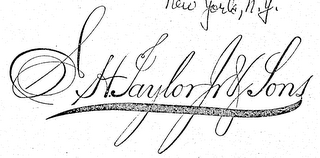 New York, N.Y.
S. H. Taylor Jr & Sons